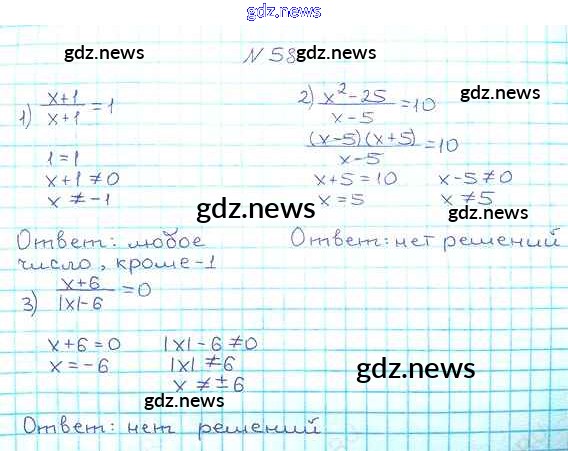 gdz.news
gdz.news
N 58
gdz.news
1) x+1/x+1 = 1
2) x²-25/x-5 = 10
gdz.news
(x-5)(x+5)/x-5 = 10
1 = 1
x+1 ≠ 0
x ≠ -1
x+5 = 10
x-5 ≠ 0
x = 5
x ≠ 5
gdz.news
gdz.news
Ответ: любое
число, кроме -1
Ответ: нет решений
3) x+6/|x|-6 = 0
x+6 = 0
|x|-6 ≠ 0
x = -6
|x| ≠ 6
x ≠ ±6
gdz.news
gdz.news
Ответ: нет решений